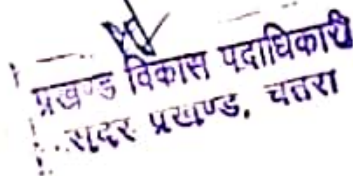 प्रखण्ड विकास पदाधिकारी
सदर प्रखण्ड, चतरा